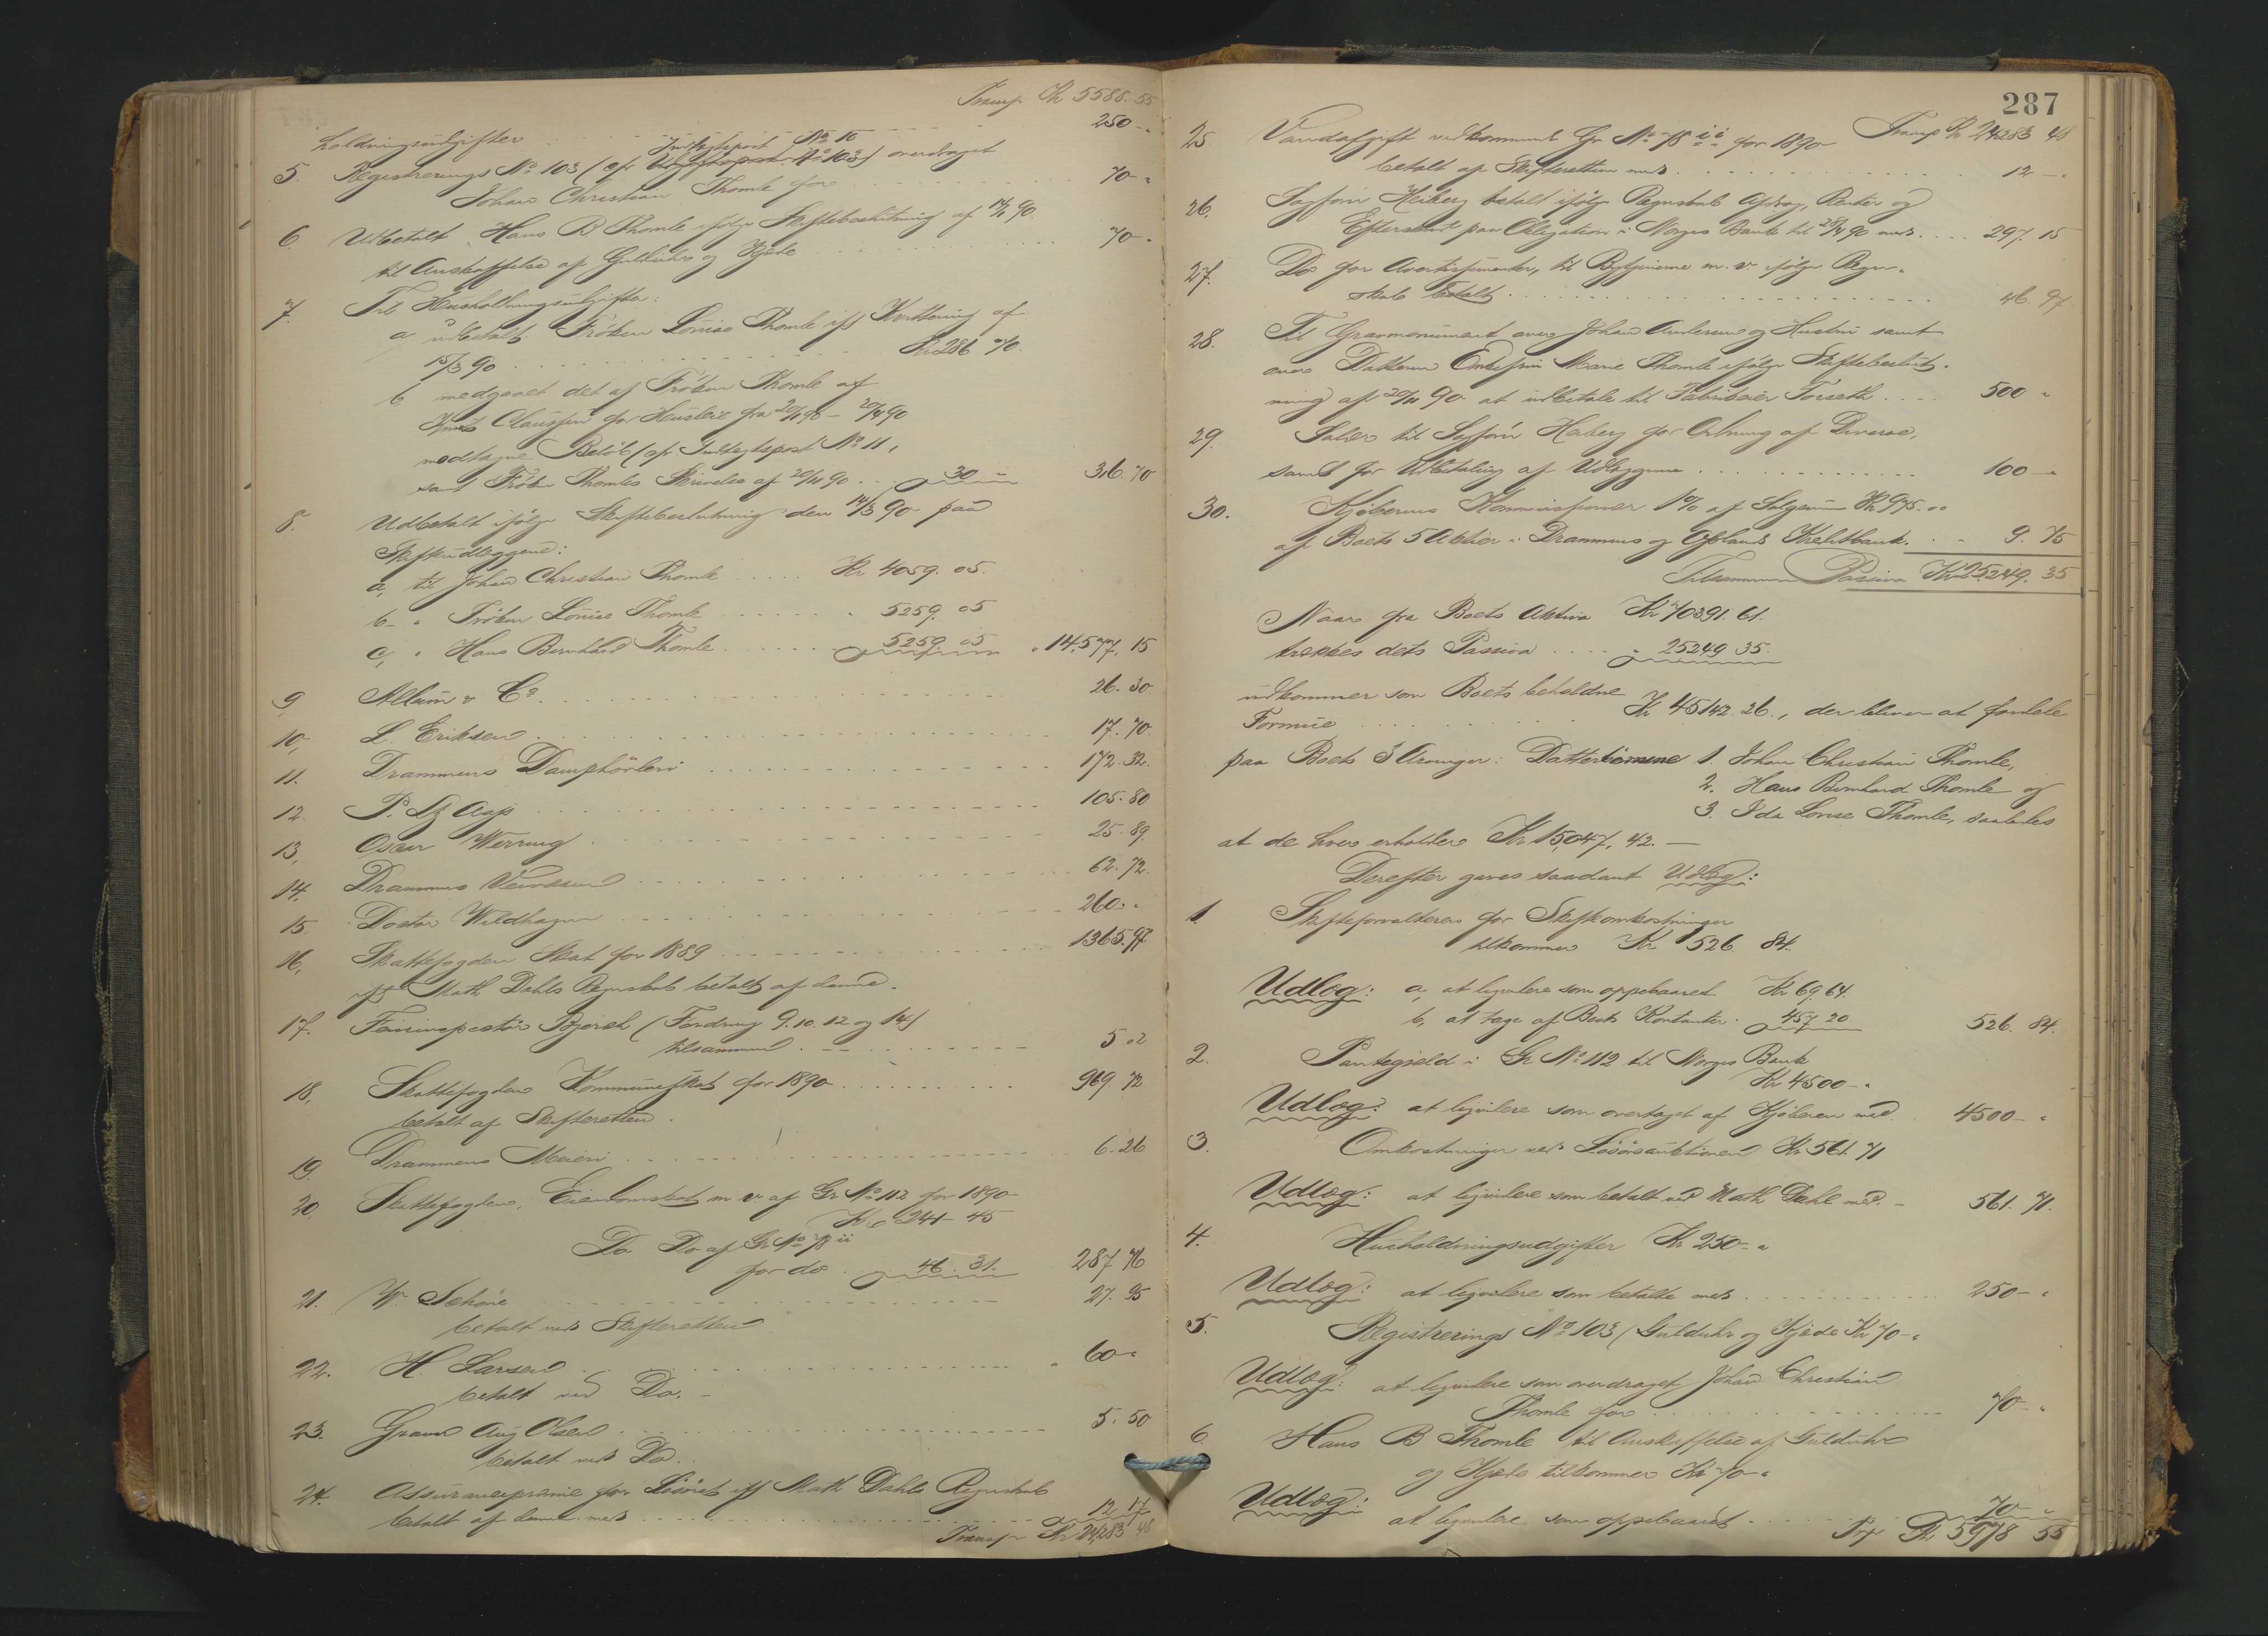 Transp. Kr 5588. 55
holdningsudgifter . . . 250 - "
Indtægtspost No 10
5. Registrerings No 103 (cfr Udgiftspost No 103) overdraget
Johan Christian Thomle for . . . 70 - "
6 Udbetalt Hans B Thomle ifølge Skiftebeslutning af 14/1 90
til Anskaffelse af Guldühr og Kjæde . . . 70 - "
7. Til Husholdningsudgifter:
a udbetalt Frøken Louise Thomle iflg Kvittering af
15/3 90 . . . Kr 286 70.
b medgaaet det af Frøken Thomle af
Claussen for Husleie fra 20/1 90 - 20/4 90
modtagne Beløb (cfr Indtægtspost No 11,
samt Frøken Thomles Skrivelse af 20/11 90 . . 30 " 316. 70
8. Udbetalt ifølge Skiftebeslutning den 14/3 90 paa
Skifteudlæggene:
a, til Johan Christian Thomle . . . Kr 4059. 05.
b - " Frøken Louise Thomle . . . " 5259. 05
c, " Hans Bernhard Thomle . . . 5259. 05 " 14,577, 15
9 Allum & Co . . . 26. 30
10, L. Eriksen . . . 17. 70
11. Drammens Dampkökeri . . . 172. 32.
12. P. Lz Aas . . . 105. 80
13, Oscar Werring . . . 25. 89.
14. Drammens Veivæsen . . . 62. 72.
15. Doctor Wildhagen . . . 260. "
16, Skattefogden Skat for 1889 . . . 1365. 97.
iflg Math Dahls Regnskab betalt af denne.
17. Feiinspectør Bjerch (Fordring 9. 10. 12 og 14)
tilsammen . . . 5 02
18, Skattefogden Kommuneskat for 1890 . . . 969. 72
betalt af Skifteretten.
19. Drammens Meieri . . . 6. 26
20. Skattefogden, Eiendomsskat m v af Gr No 112 for 1890
Kr 241 - 45
Do Do af Gr No 78 ii
for do . 46. 31. 287 76
21. W. Schöne . . . 27. 95
betalt ved Skifteretten
22. H. Larsen . . . " 60 - "
betalt ved Do. -
23. Aug Olsen . . . 5. 50
betalt ved Do.
24. Assurancepræmie for Lösöret iflg Math Dahls Regnskab
betalt af denne med . . . 12 17
Transp Kr 24,283 48
287
Transp Kr 24283 48
25 Vandafgift vedkommende Gr No 78 ii for 1890
betalt af Skifteretten med . . . 12 - "
26. Sagfører Heiberg betalt ifølge Regnskab Afdrag, Renter og
paa Obligation i Norges Bank til 28/4 90 med . . . 297. 15
27. Do for Avertissementer, til m. v. ifølge Regn-
skab betalt . . . 46. 97
28. Til Gravmonument over Johan Andersen og Hustru samt
over Datteren Enkefru Marie Thomle ifølge Skiftebeslut-
ning af 20/11 90 at udbetale til Fabrikeier Torseth . . . 500 "
29. Salær til Sagfører Heiberg for Ordning af Diverse,
samt for Udbetaling af Udlæggene . . . 100 - "
30. Kjøberens Kommissioner 1% af Salgssum Kr 975. 00
af Boets 5 Aktier i Drammens og Oplands Kreditbank . . " 9. 75
Tilsammen Passiva Kr 25249. 35
Naar fra Boets Aktiva Kr 70391. 61.
trækkes dets Passiva . . . " 25249 35.
udkommer som Boets beholdne
Formue . . . Kr 45142. 26., der bliver at fordele
paa Boets 3 Arvinger: 1. Johan Christian Thomle,
2. Hans Bernhard Thomle og
3. Ida Louise Thomle, saaledes
at de hver erholder Kr 15,047, 42. -
Derefter gjøres saadant Udlæg:
1 Skifteforvalteren for Skifteomkostninger
tilkommer Kr 526 84.
Udlæg: a, at liqvidere som oppebaaret Kr 69. 64.
b, at tage af Boets Kontanter . 457 20 526. 84.
2. Pantegjæld i Gr No 112 til Norges Bank
Kr 4500 - "
Udlæg: at liqvidere som overtaget af Kjøberen med 4500 - "
3. Omkostninger ved Løsøreauktionen Kr 561. 71
Udlæg: at liqvidere som betalt ved Math Dahl med - 561. 71.
4. Husholdningsudgifter Kr 250 - "
Udlæg: at liqvidere som betalte med . . . 250 - "
5. Registrerings No 103 (Guldühr og Kjæde Kr 70 - "
Udlæg: at liqvidere som overdraget Johan Christian
Thomle for . . . 70 - "
6. Hans B Thomle til Anskaffelse af Guldühr
og Kjæde tilkommer Kr 70 - "
Udlæg: at liqvidere som oppebaaret . . . 70 - "
Trsp Kr 5978 55